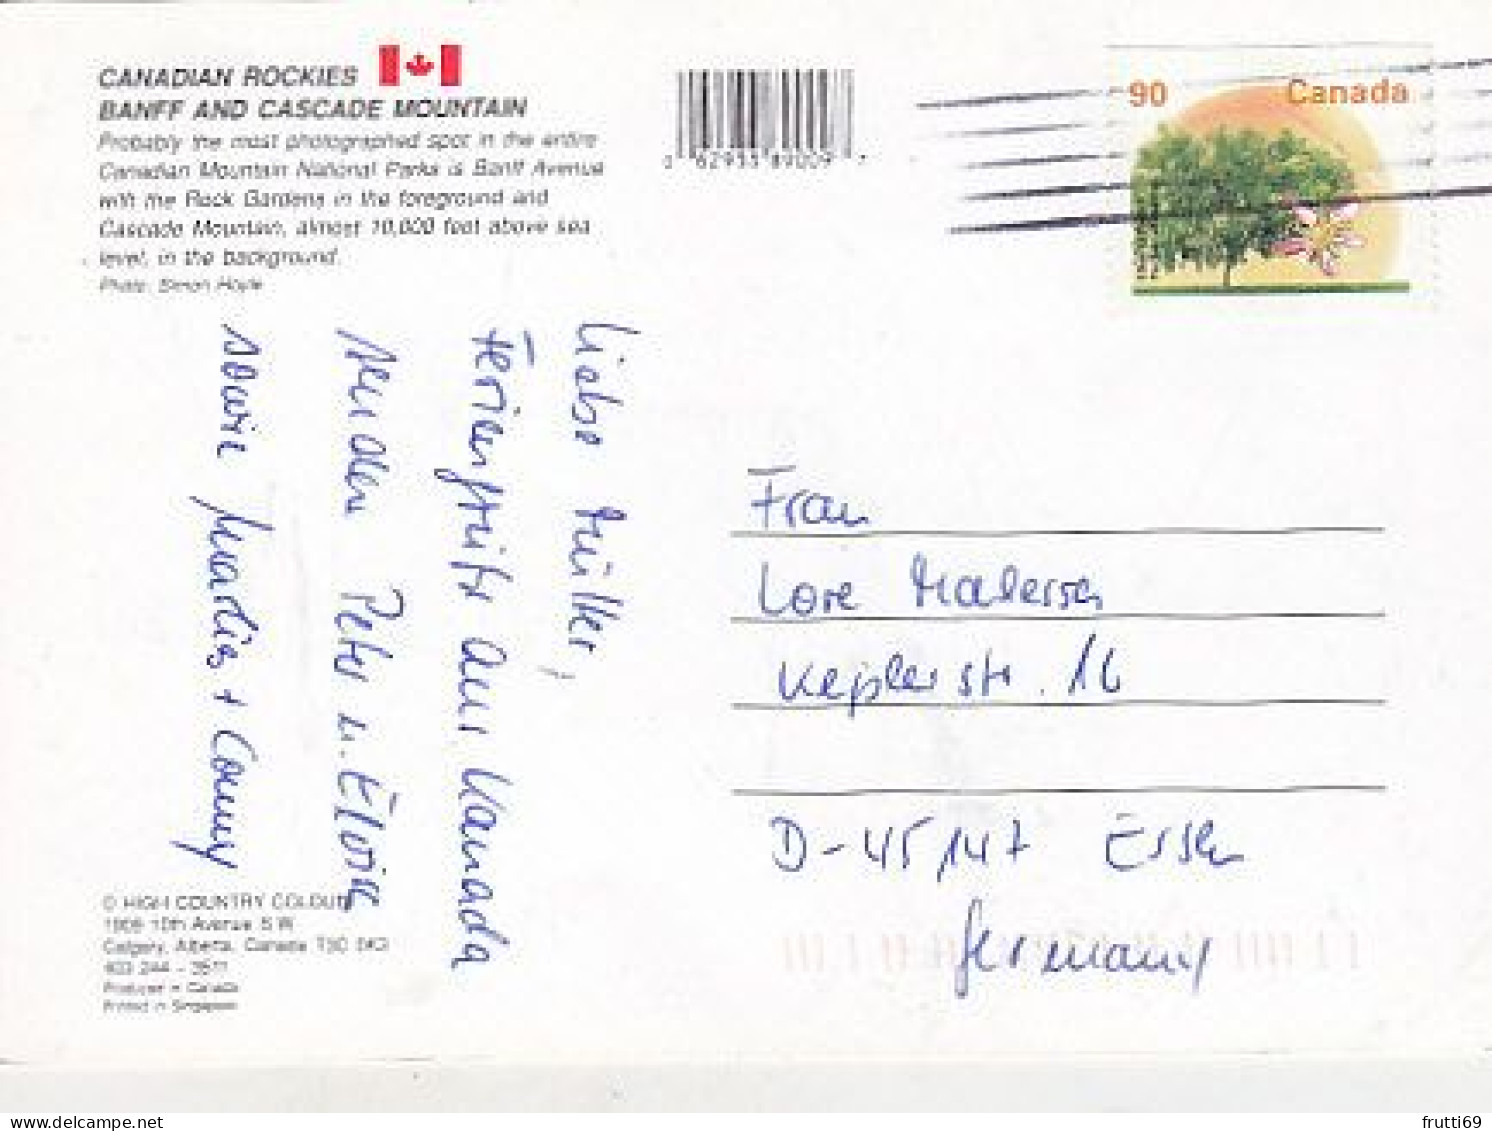 CANADIAN ROCKIES
BANFF AND CASCADE MOUNTAIN
Probably the most photographed spot in the entire
Canadian Mountain National Parks is Banff Avenue
with the Rock Gardens in the foreground and
Cascade Mountain, almost 10,000 feet above sea
level, in the background.
Photo: Simon Hoyle
0 62933 89009
90 Canada
Liebe
Feriengrüße aus Kanada
senden Peter u. Eloise
sowie + Conny
Frau
Lore
Keplerstr. 16
D-45147 Essen
Germany
© HIGH COUNTRY COLOUR
10th Avenue S.W.
Calgary, Alberta, Canada
Produced in Canada
Printed in Singapore
frutti69
www.delcampe.net